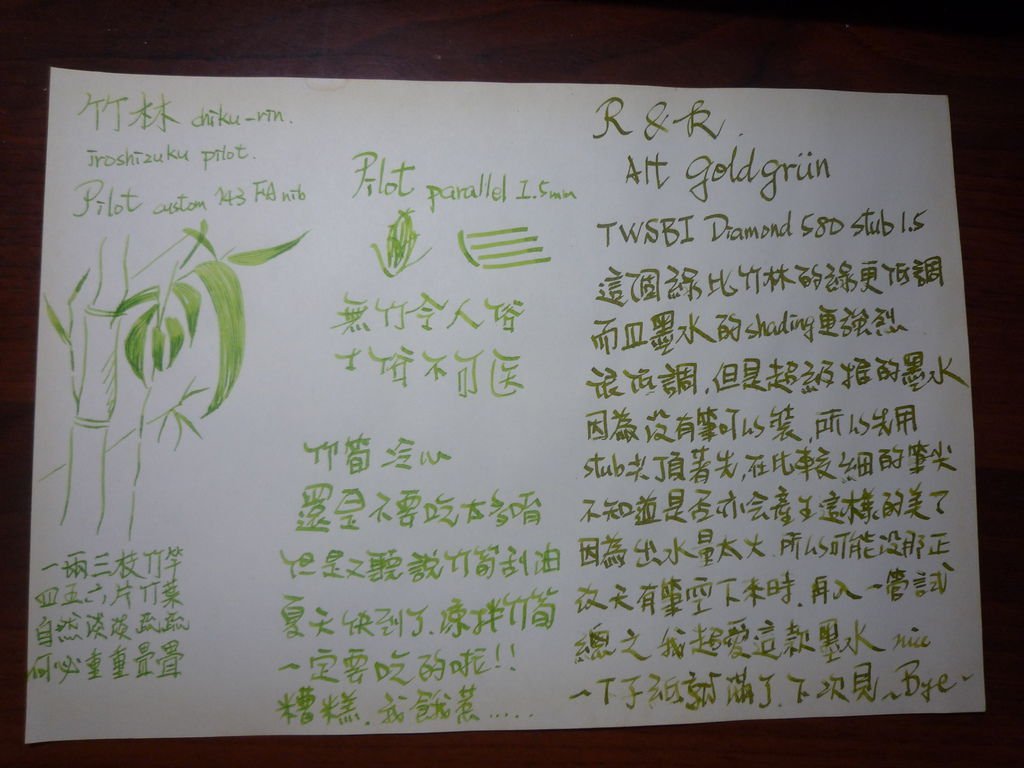 竹林 chiku-rin.
iroshizuku pilot.
Pilot custom 743 FA nib
一兩三枝竹竿
四五六片竹葉
自然淡淡疏疏
何必重重疊疊
Pilot parallel 1.5mm
無竹令人俗
士俗不可医
竹筍 冷心
還是不要吃太多唷
但是又聽說竹筍刮油
夏天快到了,涼拌竹筍
一定要吃的啦!!
糟糕,我餓惹.....
R & K
Alt Goldgrün
TWSBI Diamond 580 stub 1.5
這個綠比竹林的綠更低調
而且墨水的shading更強烈
很低調,但是超級推的墨水
因為沒有筆可以裝,所以先用
stub尖頂著先,在比較細的筆尖
不知道是否亦会產生這樣的美了
因為出水量太大,所以可能沒那正
改天有筆空下來時,再入一管試
總之 我超愛這款墨水 nice
一下子紙就滿了 下次見~Bye~